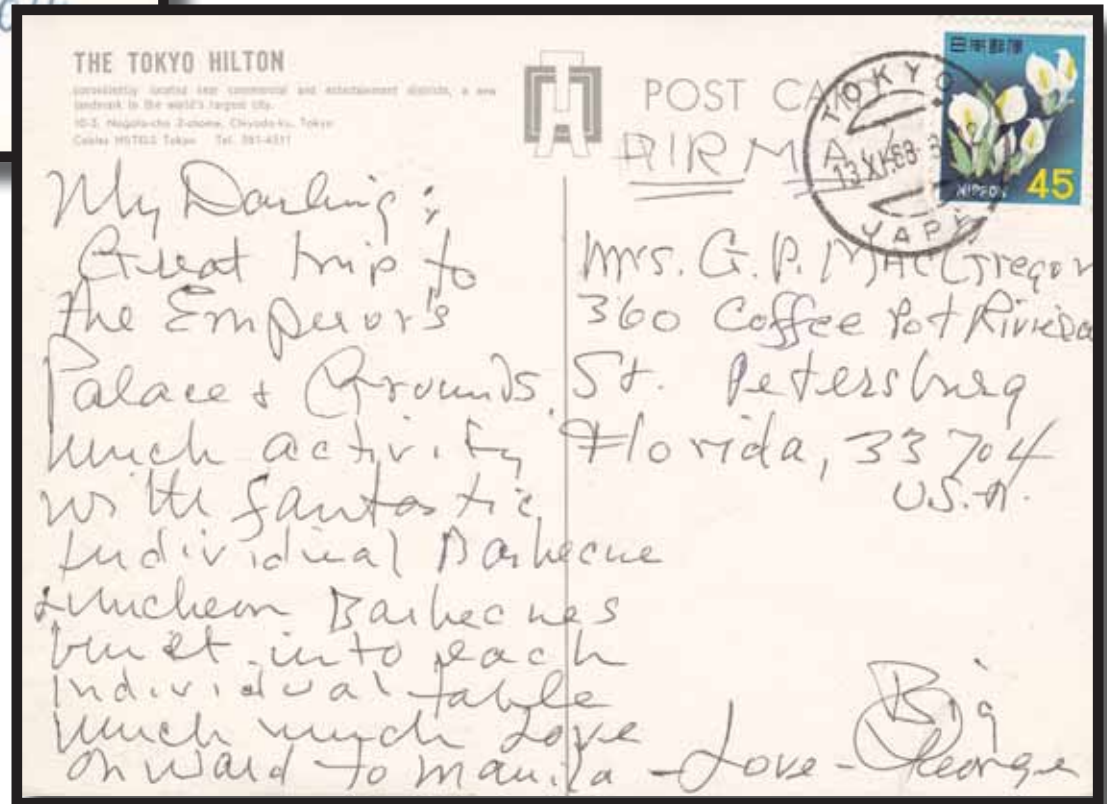 THE TOKYO HILTON
conveniently located near commercial and entertainment districts, a new
landmark in the world's largest city.
10-3, Nagata-cho 2-chome, Chiyoda-ku, Tokyo
Cables HOTELS Tokyo Tel. 581-4511
POST CARD
AIR MAIL
TOKYO
13 XI.68
JAPAN
日本郵便
NIPPON 45
My Darling;
Great trip to
the Emperor's
Palace & Grounds.
Much activity
with fantastic
Individual Barbecue
Luncheon Barbecues
built into each
individual table
Much much Love
Onward to Manila - Love - Big George
Mrs. G. P. MacGregor
360 Coffee Pot Riviera
St. Petersburg
Florida, 33704
U.S.A.